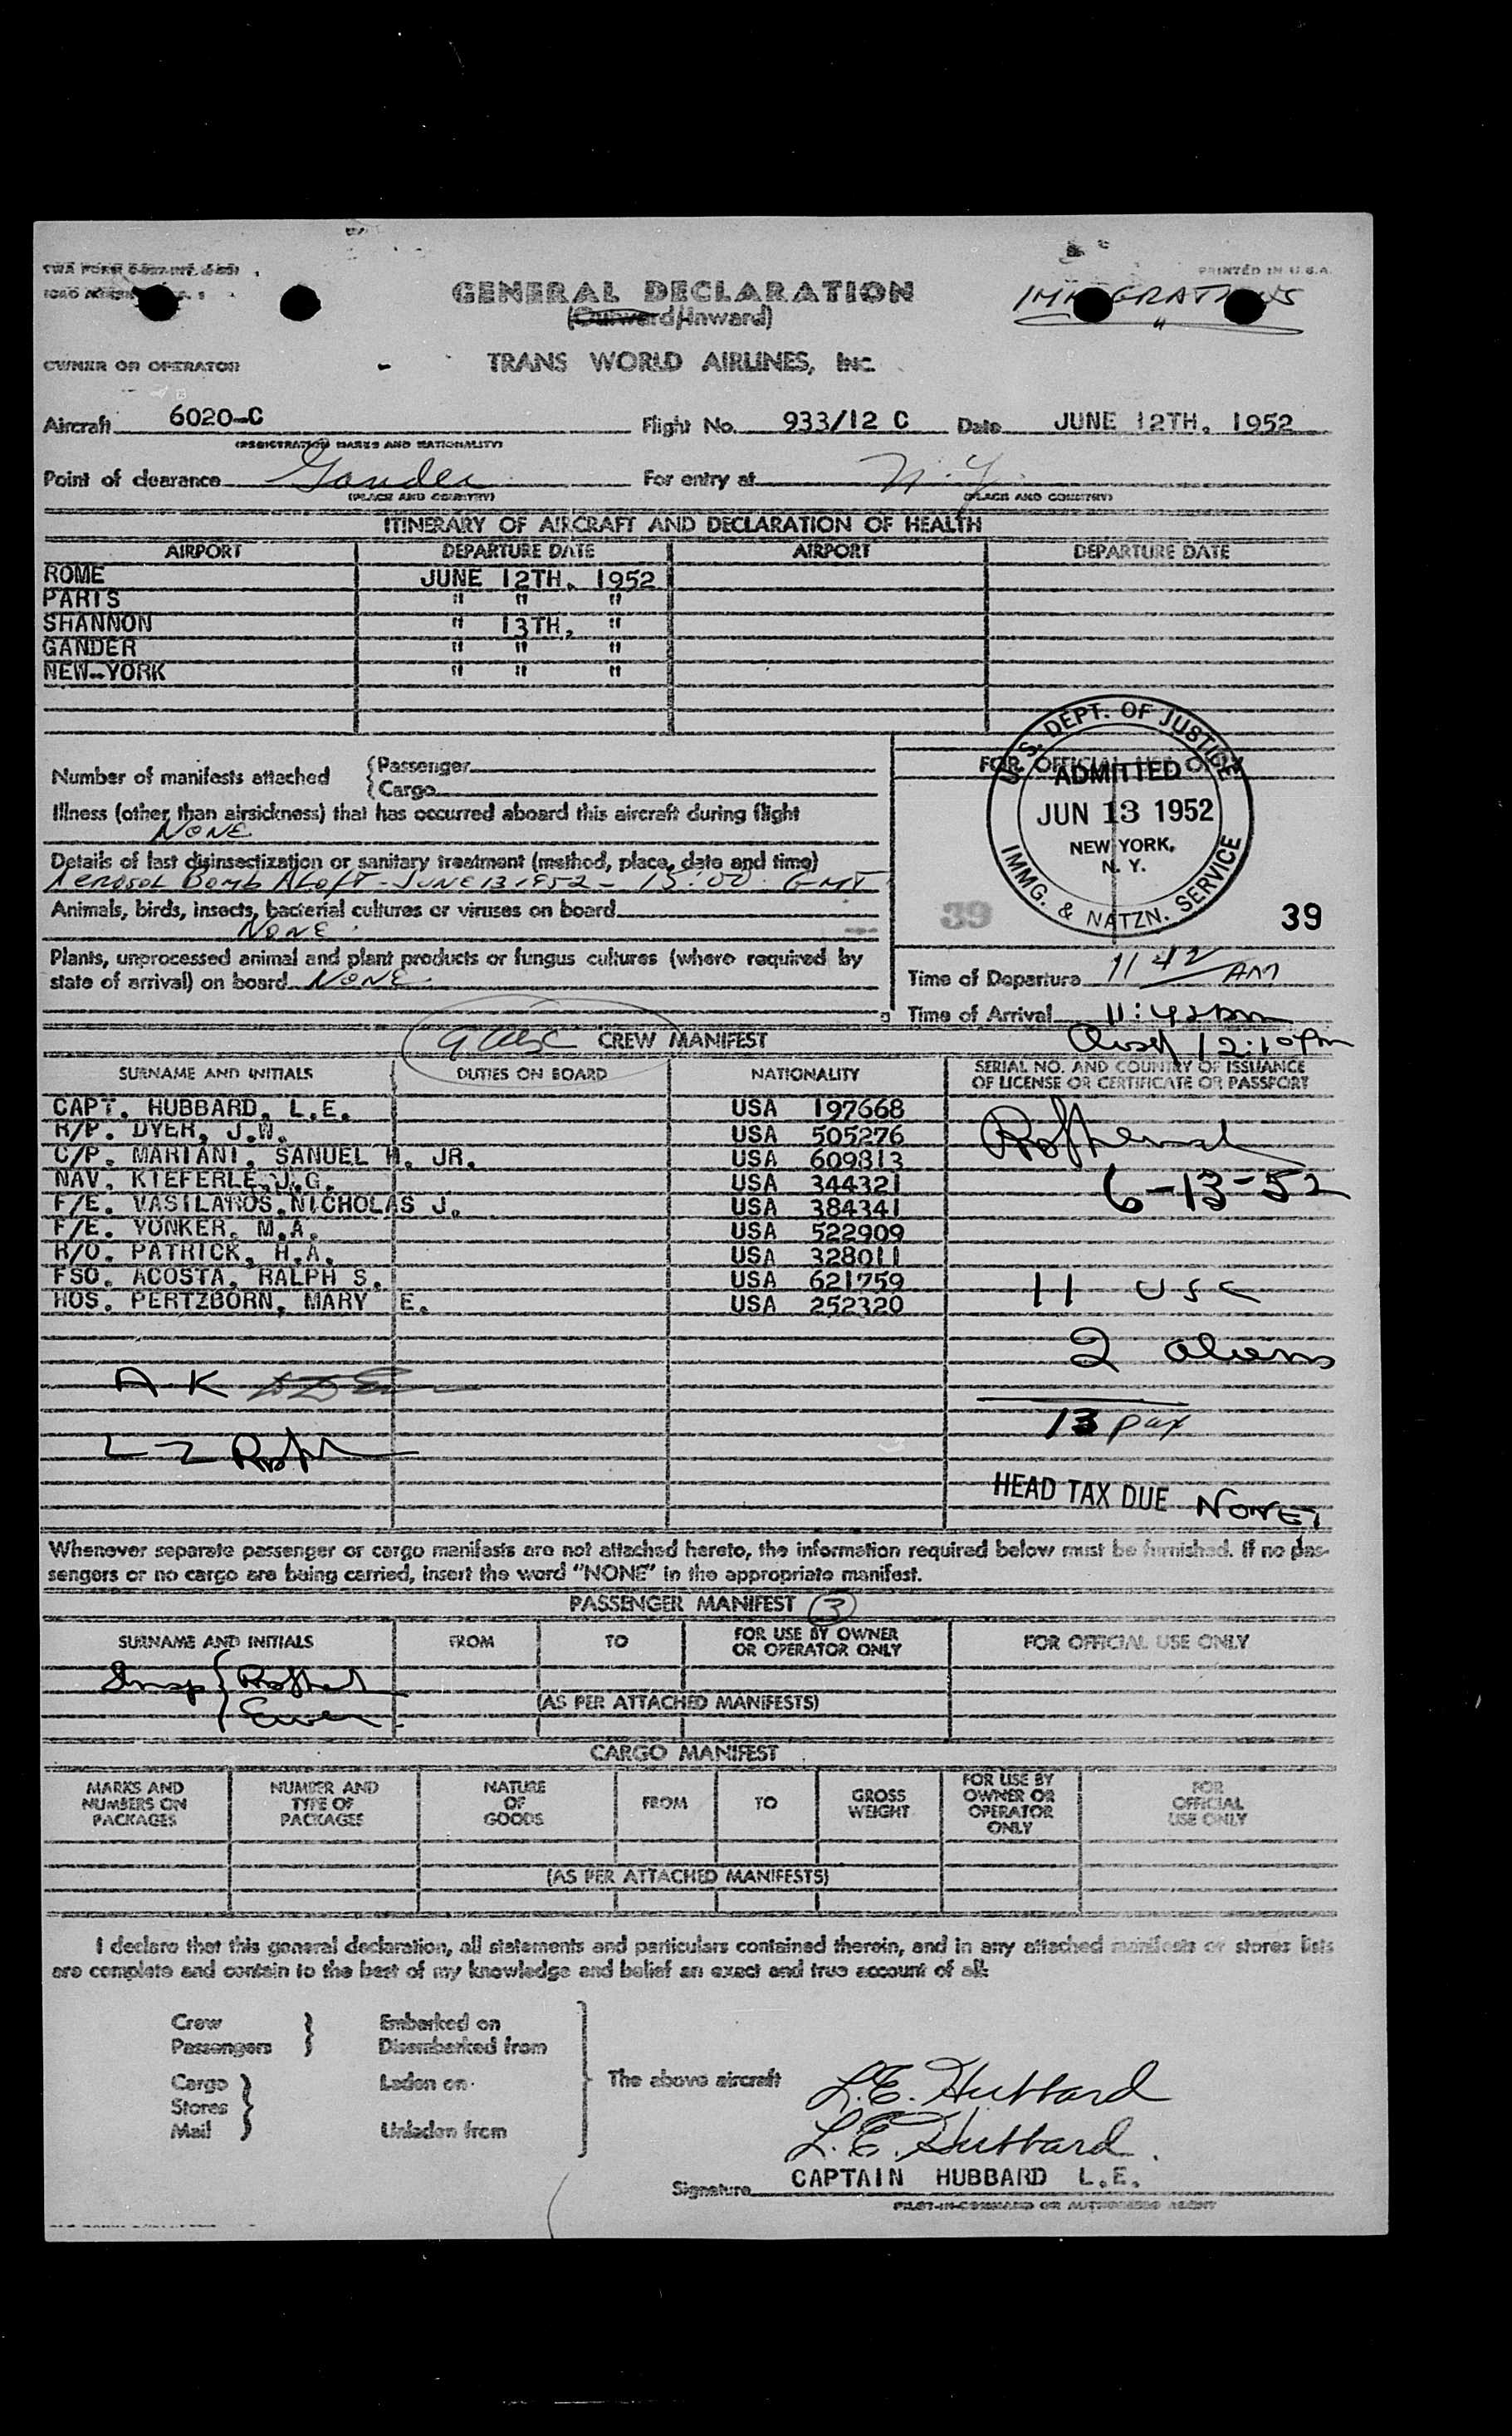 PRINTED IN U.S.A.
GENERAL DECLARATION
(Outward/Inward)
OWNER OR OPERATOR TRANS WORLD AIRLINES, Inc.
Aircraft 6020-C Flight No. 933/12 C Date JUNE 12TH, 1952
(REGISTRATION MARKS AND NATIONALITY)
Point of clearance Gander For entry at N.Y.
(PLACE AND COUNTRY) (PLACE AND COUNTRY)
ITINERARY OF AIRCRAFT AND DECLARATION OF HEALTH
AIRPORT DEPARTURE DATE AIRPORT DEPARTURE DATE
ROME JUNE 12TH, 1952
PARIS " " "
SHANNON " 13TH, "
GANDER " " "
NEW-YORK " " "
Number of manifests attached { Passenger
{ Cargo
Illness (other than airsickness) that has occurred aboard this aircraft during flight
NONE
Details of last disinsectization or sanitary treatment (method, place, date and time)
AEROSOL BOMB ALOFT - JUNE 13 1952 - 15:00 GMT
Animals, birds, insects, bacterial cultures or viruses on board
NONE
Plants, unprocessed animal and plant products or fungus cultures (where required by
state of arrival) on board NONE
FOR OFFICIAL USE ONLY
U.S. DEPT. OF JUSTICE
ADMITTED
JUN 13 1952
NEW YORK,
N. Y.
IMMG. & NATZN. SERVICE
39 39
Time of Departure 11 42 AM
Time of Arrival 11:42 am
12:10 Pm
CREW MANIFEST
SURNAME AND INITIALS DUTIES ON BOARD NATIONALITY SERIAL NO. AND COUNTRY OF ISSUANCE
OF LICENSE OR CERTIFICATE OR PASSPORT
CAPT. HUBBARD, L.E. USA 197668
R/P. DYER, J.W. USA 505276
C/P. MARIANI, SANUEL H. JR. USA 609813
NAV. KIEFERLE, J.G. USA 344321
6-13-52
F/E. VASILAROS, NICHOLAS J. USA 384341
F/E. YONKER, M.A. USA 522909
R/O. PATRICK, H.A. USA 328011
FSO. ACOSTA, RALPH S. USA 621759
HOS. PERTZBORN, MARY E. USA 252320
11 USC
2 aliens
A-K
13 pax
HEAD TAX DUE NONE
Whenever separate passenger or cargo manifests are not attached hereto, the information required below must be furnished. If no pas-
sengers or no cargo are being carried, insert the word "NONE" in the appropriate manifest.
PASSENGER MANIFEST 3
SURNAME AND INITIALS FROM TO FOR USE BY OWNER
OR OPERATOR ONLY FOR OFFICIAL USE ONLY
Insp
(AS PER ATTACHED MANIFESTS)
CARGO MANIFEST
MARKS AND
NUMBERS ON
PACKAGES NUMBER AND
TYPE OF
PACKAGES NATURE
OF
GOODS FROM TO GROSS
WEIGHT FOR USE BY
OWNER OR
OPERATOR
ONLY FOR
OFFICIAL
USE ONLY
(AS PER ATTACHED MANIFESTS)
I declare that this general declaration, all statements and particulars contained therein, and in any attached manifests or stores lists
are complete and contain to the best of my knowledge and belief an exact and true account of all:
Crew Embarked on
Passengers Disembarked from
Cargo Laden on
Stores
Mail Unladen from
The above aircraft L.E. Hubbard
L.E. Hubbard.
Signature CAPTAIN HUBBARD L.E.
PILOT-IN-COMMAND OR AUTHORISED AGENT